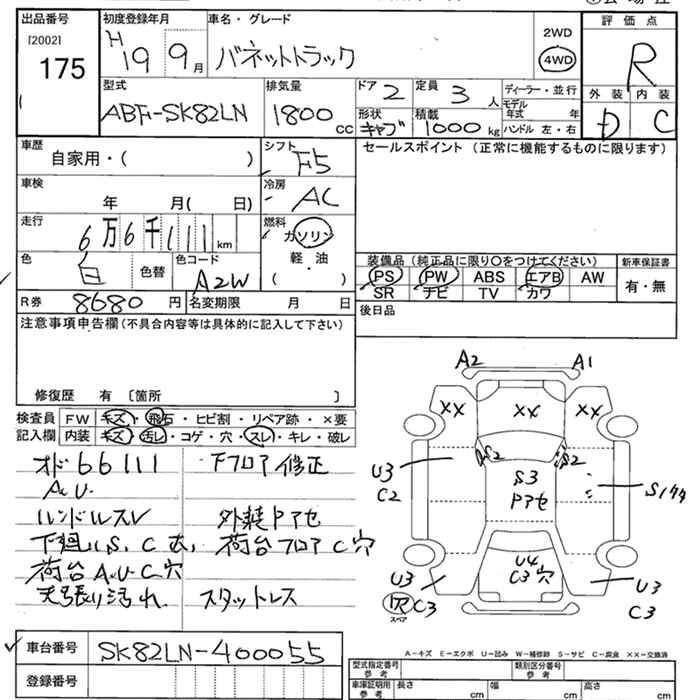 出品番号
[2002]
175
初度登録年月
H 19 9月
車名・グレード
バネットトラック
2WD
4WD
評価点
R
外装 内装
D C
型式
ABF-SK82LN
排気量
1800 cc
ドア 2
定員 3 人
形状 キャブ
積載 1000 kg
ディーラー・並行
モデル年式 年
ハンドル 左・右
車歴
自家用・( )
シフト F5
セールスポイント (正常に機能するものに限ります)
車検
年 月( 日)
冷房 AC
走行
6万6千111km
燃料
ガソリン
軽・油
( )
色
白
色替
色コード
A2W
装備品 (純正品に限り〇をつけてください)
新車保証書
PS PW ABS エアB AW
SR ナビ TV カワ
有・無
R券 8680 円
名変期限 月 日
後日品
注意事項申告欄 (不具合内容等は具体的に記入して下さい)
修復歴 有 〔箇所 〕
検査員
記入欄
FW キズ・飛石・ヒビ割・リペア跡・×要
内装 キズ・汚レ・コゲ・穴・スレ・キレ・破レ
オド66111 下フロア修正
A.U.
ハンドルスレ 外装Pアセ
下廻りS.C大 荷台フロアC穴
荷台A.U.C穴
天張り汚れ スタットレス
A2 A1
XX XX XX
S2 S2
U3
C2
S3
Pアセ
U4
C3穴
U3
C3
スペア
U3
C3
A-キズ E-エクボ U-凹み W-補修跡 S-サビ C-腐食 ××-交換済
車台番号 SK82LN-400055
登録番号
型式指定番号 参考
類別区分番号 参考
車庫証明用 参考
長さ cm
幅 cm
高さ cm